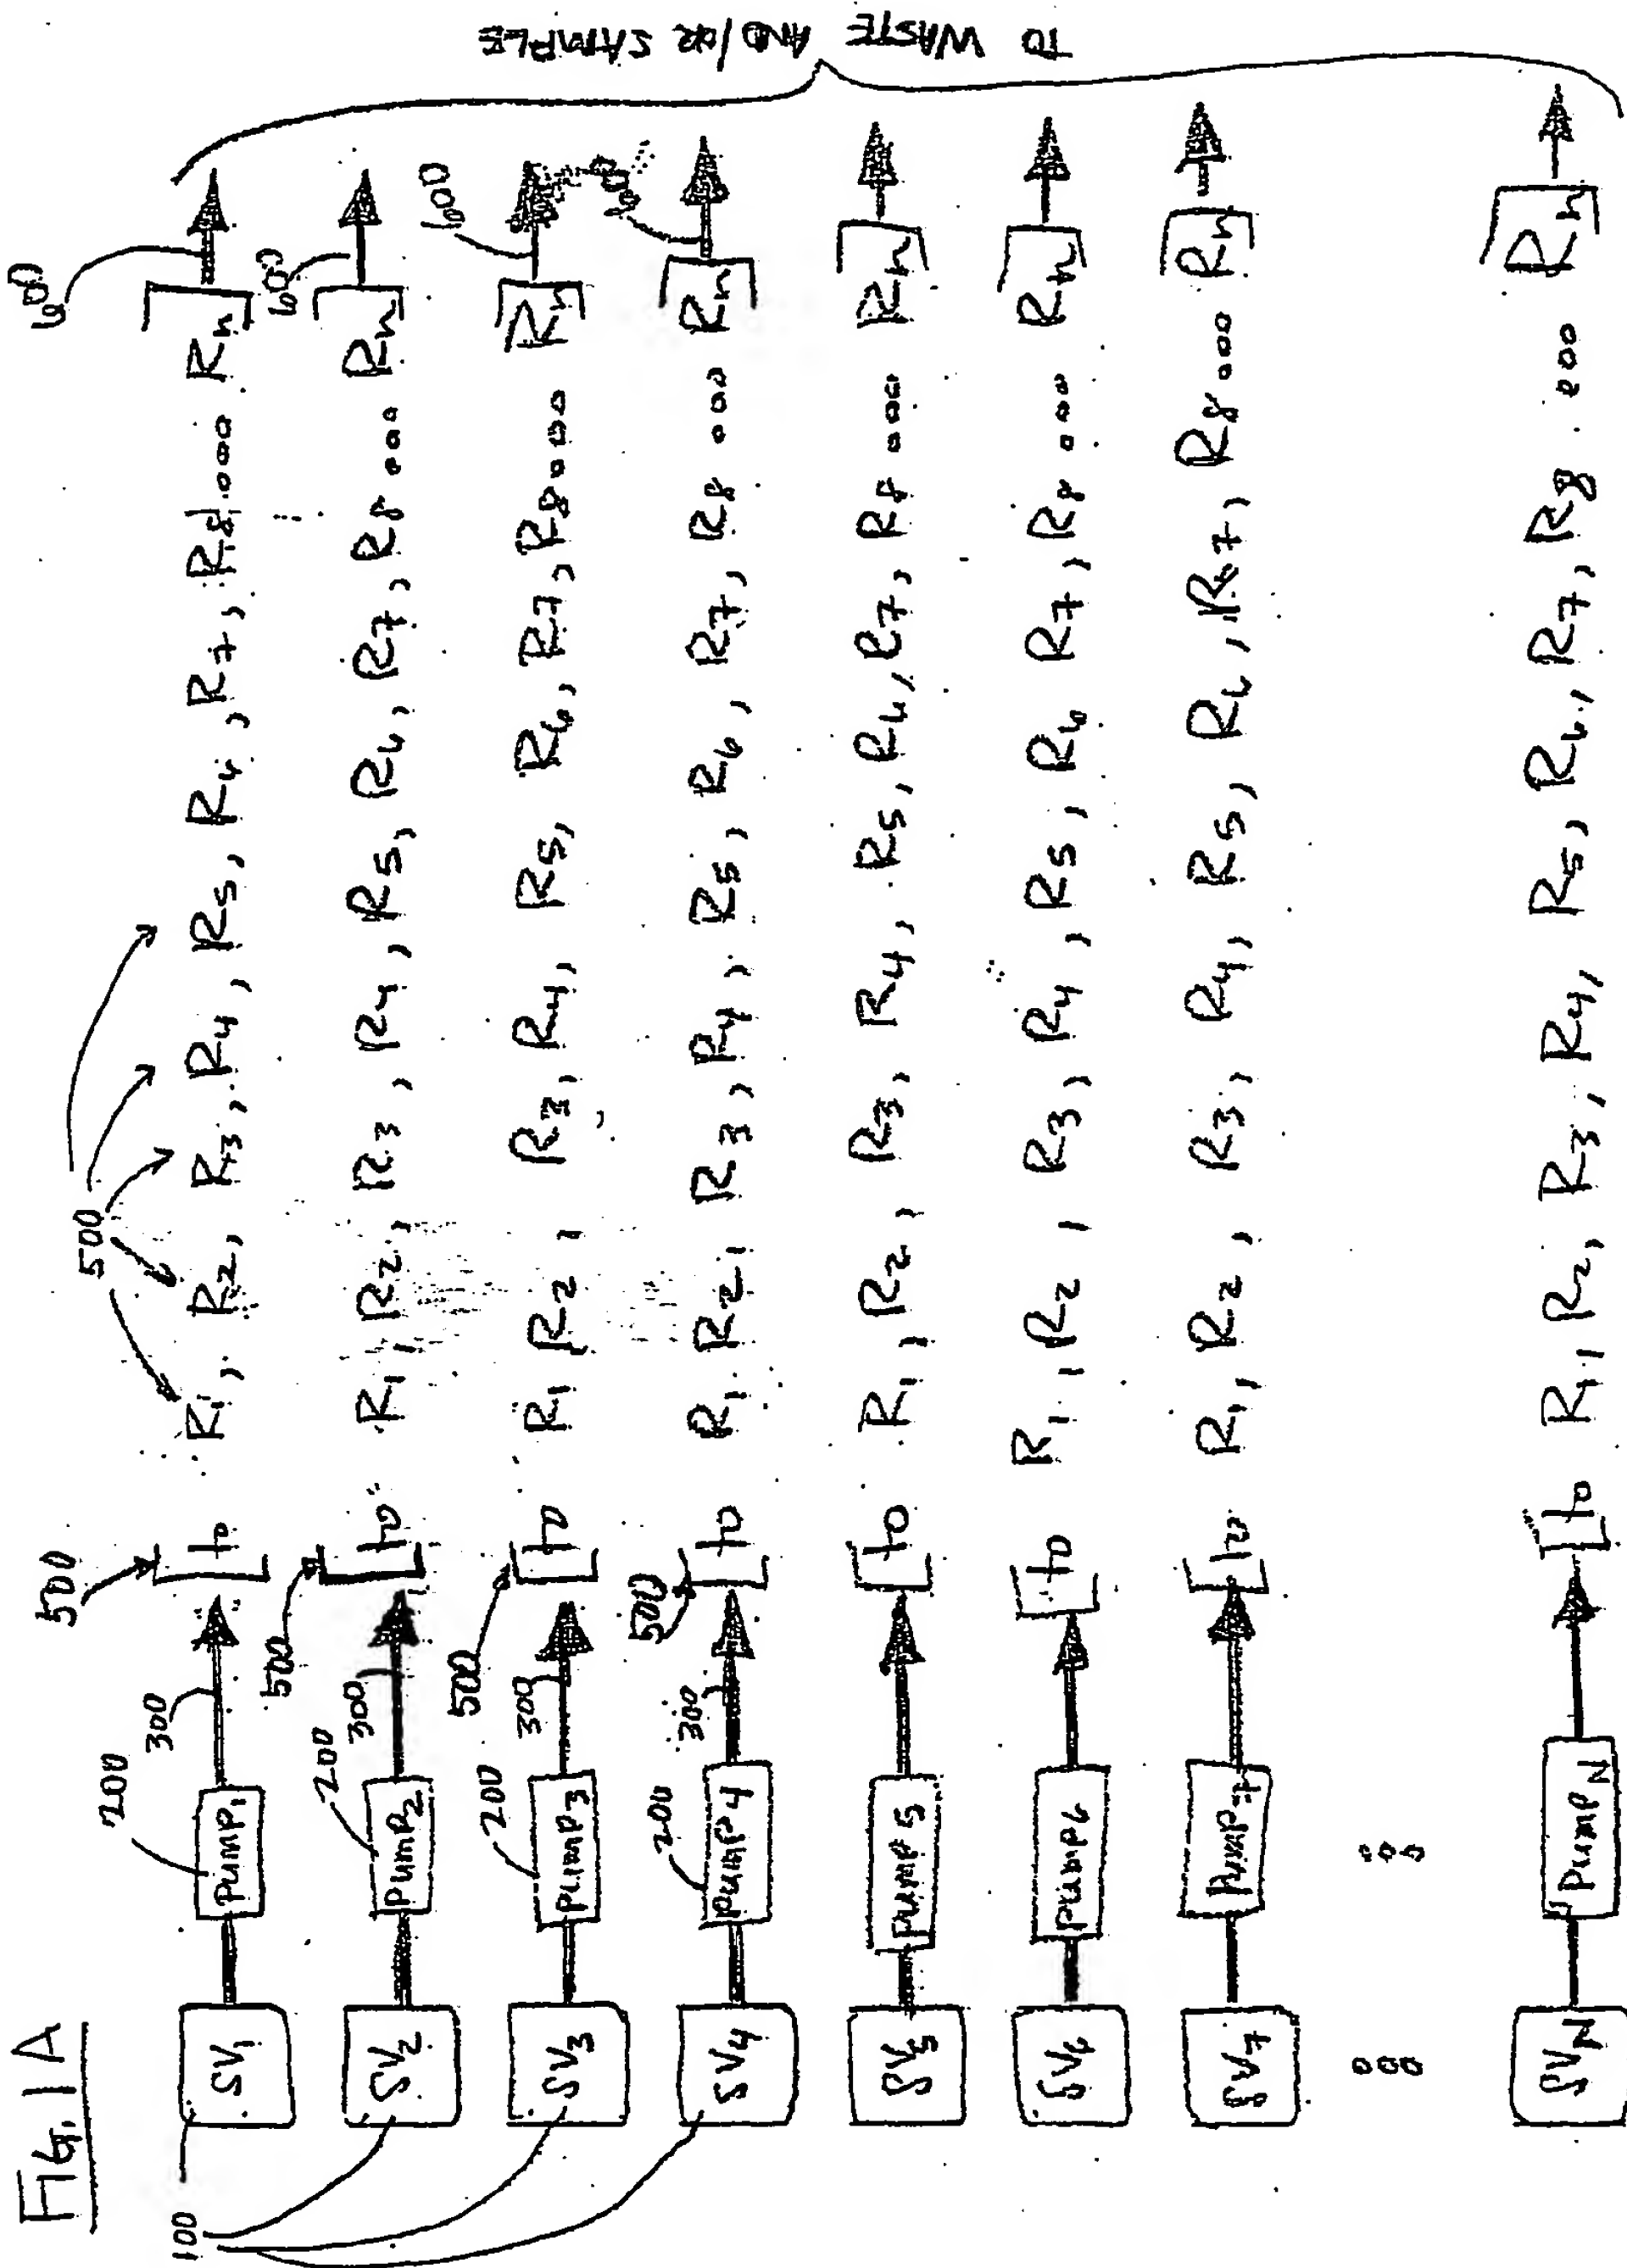 FIG. 1A
100
SV1 200 Pump1 300 500 [to R1, R2, R3, R4, R5, R6, R7, R8 ... Rn] 600
500
SV2 200 Pump2 300 500 [to R1, R2, R3, R4, R5, R6, R7, R8 ... Rn] 600
SV3 200 Pump3 300 500 [to R1, R2, R3, R4, R5, R6, R7, R8 ... Rn] 600
SV4 200 Pump4 300 500 [to R1, R2, R3, R4, R5, R6, R7, R8 ... Rn] 600
SV5 Pump5 [to R1, R2, R3, R4, R5, R6, R7, R8 ... Rn]
SV6 Pump6 [to R1, R2, R3, R4, R5, R6 R7, R8 ... Rn]
SV7 Pump7 [to R1, R2, R3, R4, R5, R6, R7, R8 ... Rn]
... ...
SVN PumpN [to R1, R2, R3, R4, R5, R6, R7, R8 ... Rn]
TO WASTE AND/OR SAMPLE